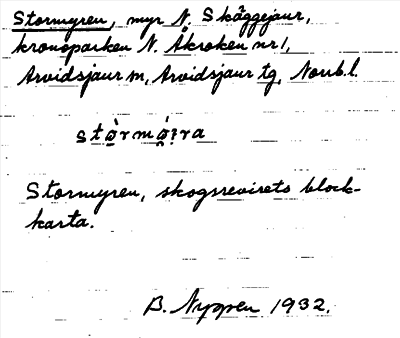 Stormyren, myr N. Skäggejaur,
kronoparken N. Åkroken nr 1,
Arvidsjaur sn, Arvidsjaur tg, Norrb. l.
Stormyren, skogsrevirets block-
karta.
B. Nyppen 1932.